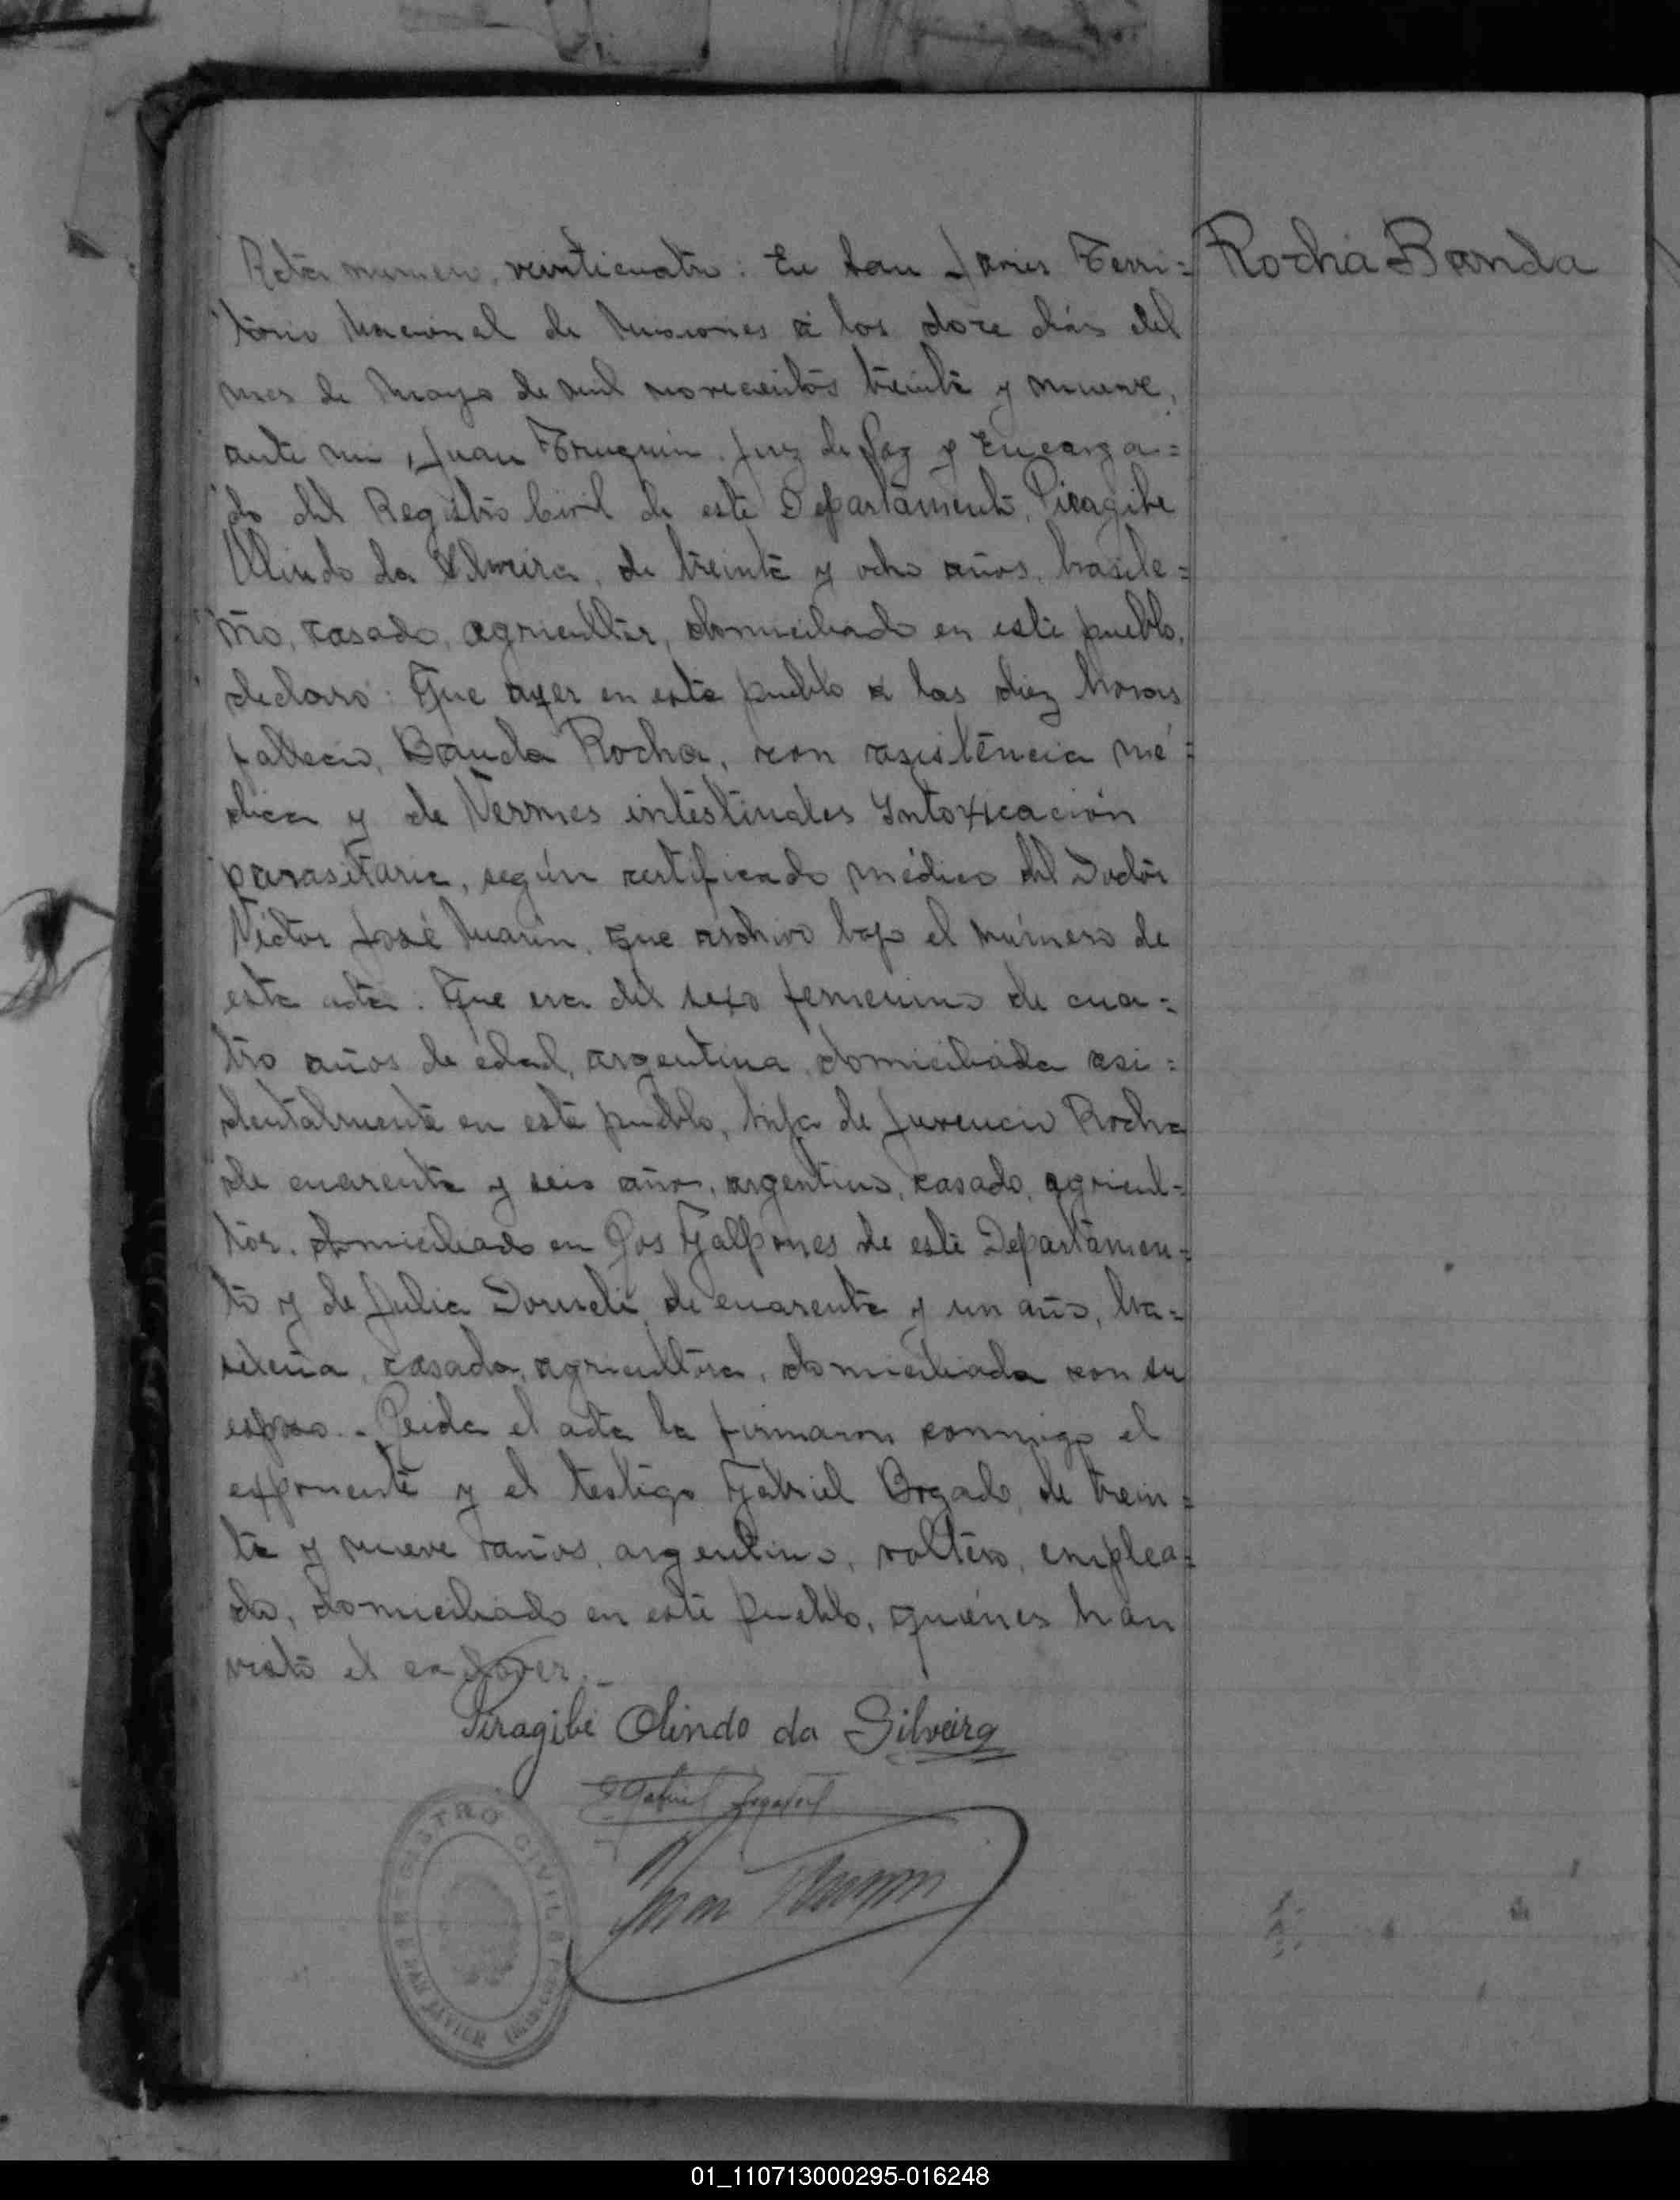 Rocha Banda
Acta numero veinticuatro: En San Javier Terri=
torio Nacional de Misiones a los doce dias del
mes de Mayo de mil novecientos treinta y nueve,
ante mi, Juan Truquin Juez de Paz y Encarga=
do del Registro Civil de este Departamento, Piragibe
Olindo da Silveira, de treinta y ocho años, brasile=
ño, casado, agricultor, domiciliado en este pueblo,
declaro: Que ayer en este pueblo a las diez horas
fallecio, Banda Rocha, con asistencia mé=
dica y de Vermes intestinales Intoxicación
parasitaria, según certificado médico del Doctor
Víctor José Marin, que archivo bajo el número de
esta acta. Que era del sexo femenino de cua=
tro años de edad, argentina, domiciliada asi=
dentalmente en este pueblo, hija de Juvencio Rocha
de cuarenta y seis años, argentino, casado, agricul=
tor, domiciliado en Los Galpones de este Departamen=
to y de Julia de cuarenta y un año, bra=
sileña, casada, agricultora, domiciliada con su
esposo.- Leida el acta la firmaron conmigo el
exponente y el testigo Gabriel de trein=
ta y nueve años, argentino, soltero, emplea=
do, domiciliado en este pueblo, quiénes han
visto el cadáver.-
Piragibe Olindo da Silveira
Gabriel
Juan
REGISTRO CIVIL
SAN JAVIER
01_110713000295-016248